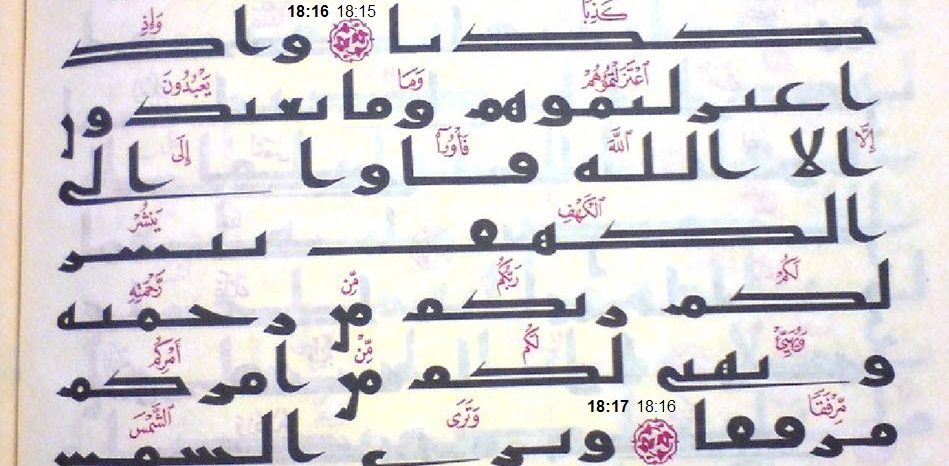 18:16 18:15
كَذِبًا وَإِذِ
كذبا واذ
ٱعْتَزَلْتُمُوهُمْ وَمَا يَعْبُدُونَ
اعتزلتموهم وما يعبدون
إِلَّا ٱللَّهَ فَأْوُۥٓا۟ إِلَى
الا الله فاوا الى
ٱلْكَهْفِ يَنشُرْ
الكهف ينشر
لَكُمْ رَبُّكُم مِّن رَّحْمَتِهِۦ
لكم ربكم من رحمته
وَيُهَيِّئْ لَكُم مِّنْ أَمْرِكُم
ويهيى لكم من امركم
18:17 18:16
مِّرْفَقًا وَتَرَى ٱلشَّمْسَ
مرفقا وترى الشمس